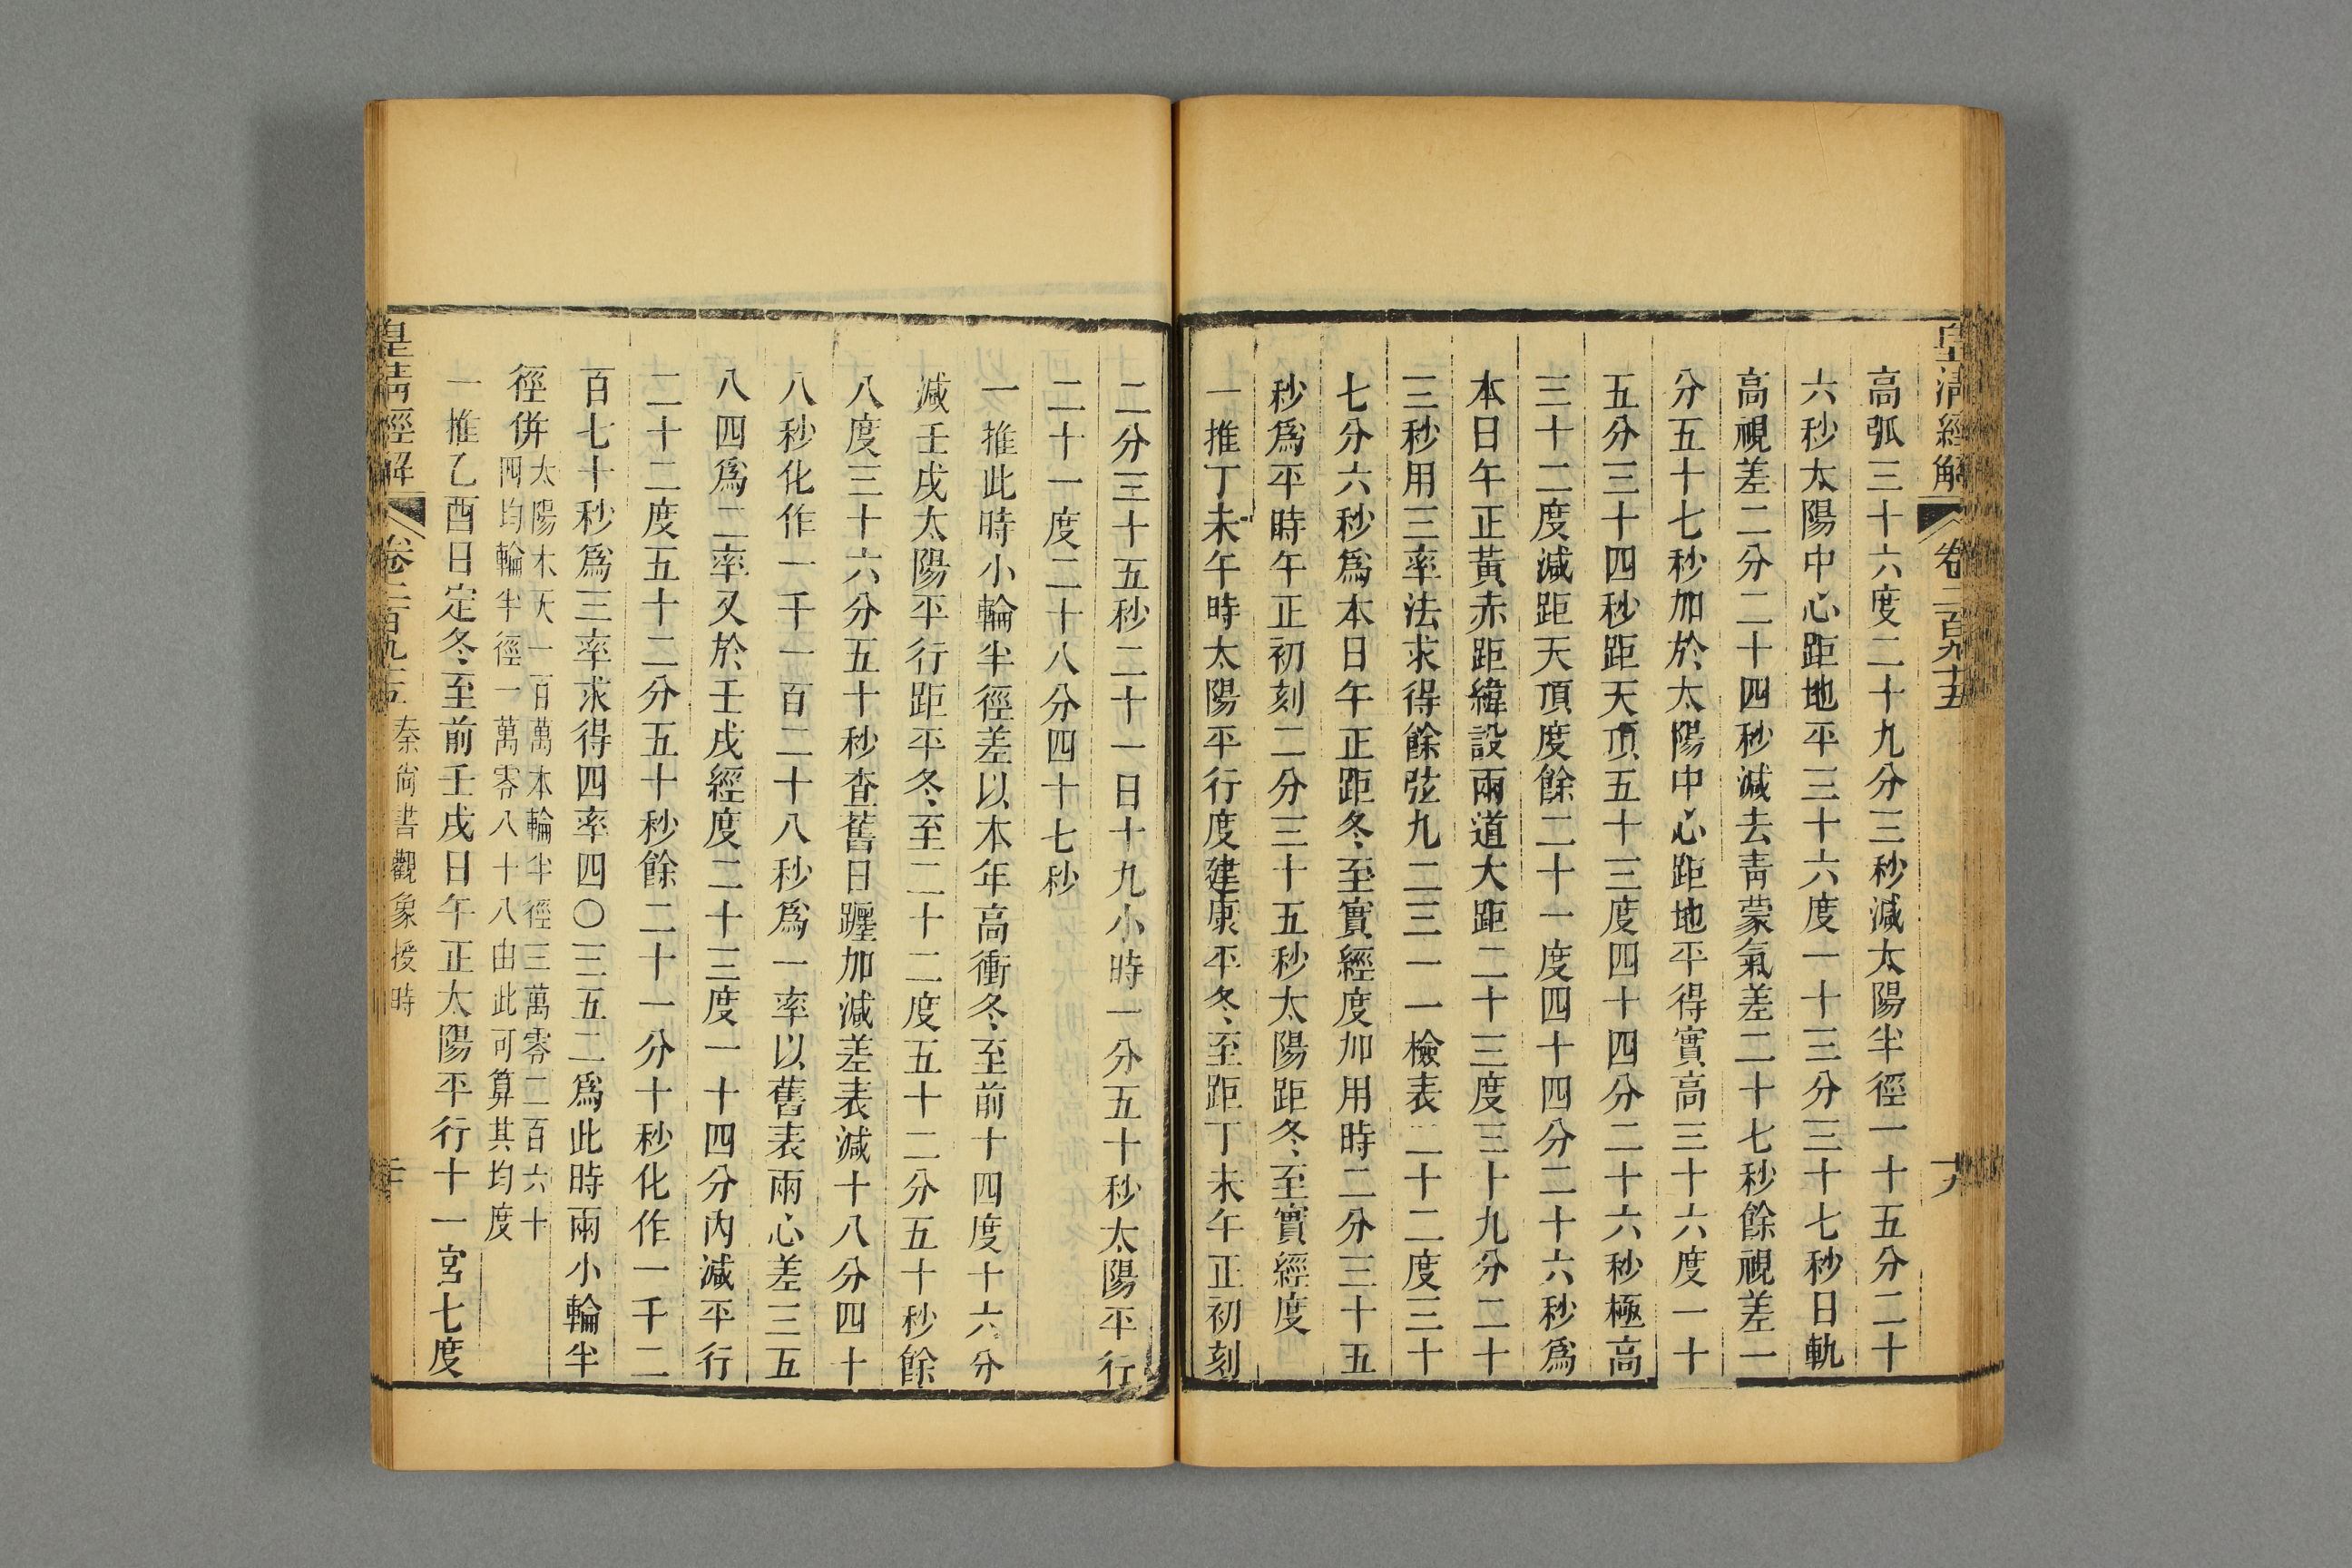 皇清經解
卷二百九十五
十九
高弧三十六度二十九分三秒減太陽半徑一十五分二十
六秒太陽中心距地平三十六度一十三分三十七秒日軌
高視差二分二十四秒減去靑蒙氣差二十七秒餘視差一
分五十七秒加於太陽中心距地平得實高三十六度一十
五分三十四秒距天頂五十三度四十四分二十六秒極高
三十二度減距天頂度餘二十一度四十四分二十六秒爲
本日午正黃赤距緯設兩道大距二十三度三十九分二十
三秒用三率法求得餘弦九二三一一檢表二十二度三十
七分六秒爲本日午正距冬至實經度加用時二分三十五
秒爲平時午正初刻二分三十五秒太陽距冬至實經度
一推丁未午時太陽平行度建康平冬至距丁未午正初刻
二分三十五秒二十一日十九小時一分五十秒太陽平行
二十一度二十八分四十七秒
一推此時小輪半徑差以本年高衝冬至前十四度十六分
減壬戌太陽平行距平冬至二十二度五十二分五十秒餘
八度三十六分五十秒查舊日躔加減差表減十八分四十
八秒化作一千一百二十八秒爲一率以舊表兩心差三五
八四爲二率又於壬戌經度二十三度一十四分內減平行
二十二度五十二分五十秒餘二十一分十秒化作一千二
百七十秒爲三率求得四率四〇三五二爲此時兩小輪半
徑併
太陽本天一百萬本輪半徑三萬零二百六十
四均輪半徑一萬零八十八由此可算其均度
一推乙酉日定冬至前壬戌日午正太陽平行十一宮七度
皇清經解
卷二百九十五
秦尚書觀象授時
二十